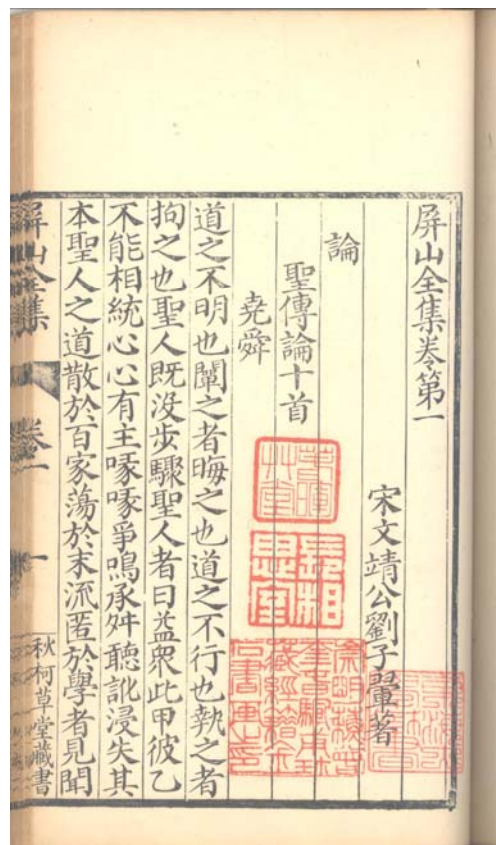 屏山全集卷第一
宋文靖公劉子翬著
論
聖傳論十首
堯舜
道之不明也闡之者晦之也道之不行也執之者
拘之也聖人既没步驟聖人者日益衆此甲彼乙
不能相統心心有主喙喙爭鳴承舛聽訛浸失其
本聖人之道散於百家蕩於末流匿於學者見聞
屏山全集
卷一
一
秋柯草堂藏書
長相思室